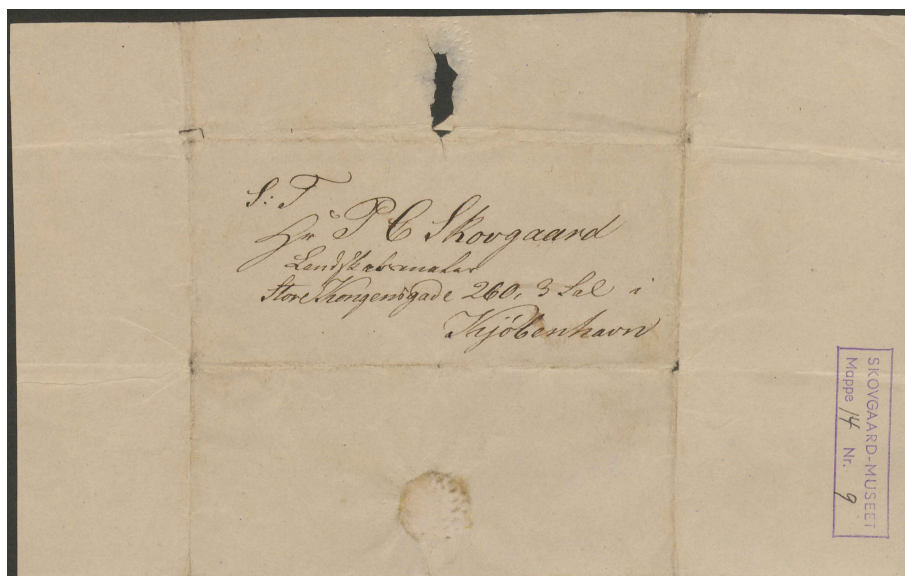 S: T
Hr P C Skovgaard
Landskabsmaler
Store Kongensgade 260, 3 Sal i
Kjöbenhavn
SKOVGAARD-MUSEET
Mappe 14 Nr. 9